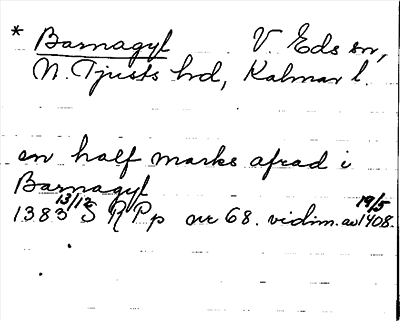 * Barnagyl V. Eds sn,
N. Tjusts hd, Kalmar l.
en half marks afrad i
Barnagyl
1383 13/12 S RPp nr 68. vidim. av 19/5 1408.